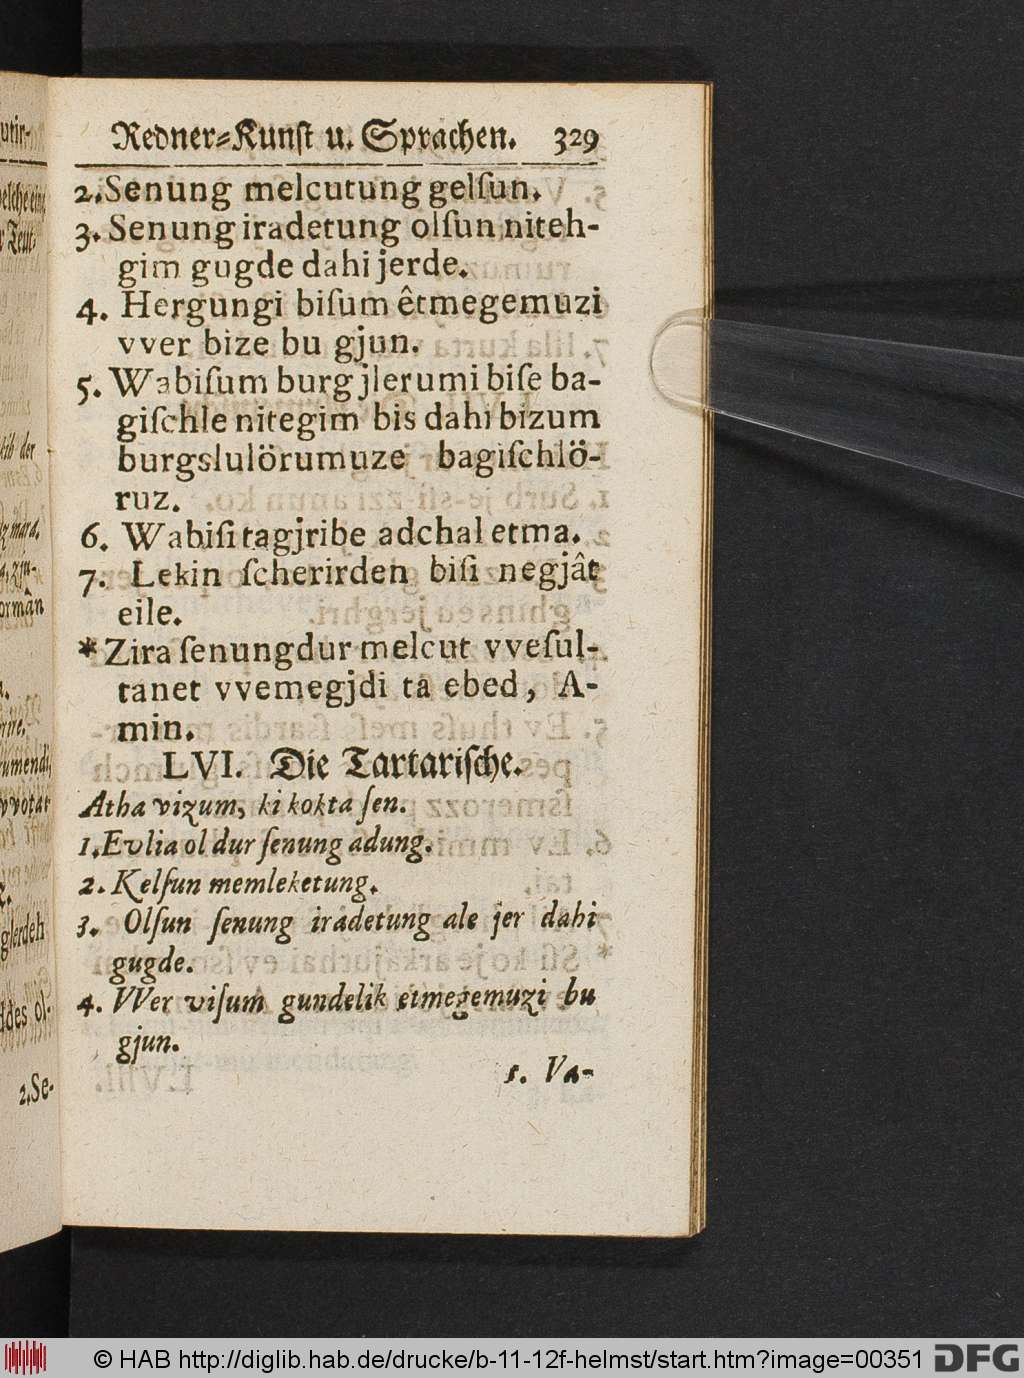 Redner-Kunst u. Sprachen. 329
2.Senung melcutung gelſun.
3. Senung iradetung olſun niteh-
gim gugde dahi jerde.
4. Hergungi biſum êtmegemuzi
vver bize bu gjun.
5. Wabiſum burg jlerumi biſe ba-
giſchle nitegim bis dahi bizum
burgslulörumuze bagiſchlö-
ruz.
6. Wabiſi tagjribe adchal etma.
7. Lekin ſcherirden biſi negjât
eile.
* Zira ſenungdur melcut vveſul-
tanet vvemegjdi ta ebed, A-
min.
LVI. Die Tartariſche.
Atha vizum, ki kokta ſen.
1.Evlia ol dur ſenung adung.
2. Kelſun memleketung.
3. Olſun ſenung iradetung ale jer dahi
gugde.
4. VVer viſum gundelik etmegemuzi bu
gjun.
5. Va-
2.Se-
© HAB http://diglib.hab.de/drucke/b-11-12f-helmst/start.htm?image=00351
DFG